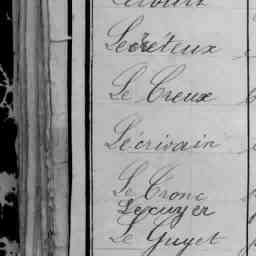 Lecréteux
Le Creux
Lécrivain
Le Cronc
Lecuyer
Le Guyet